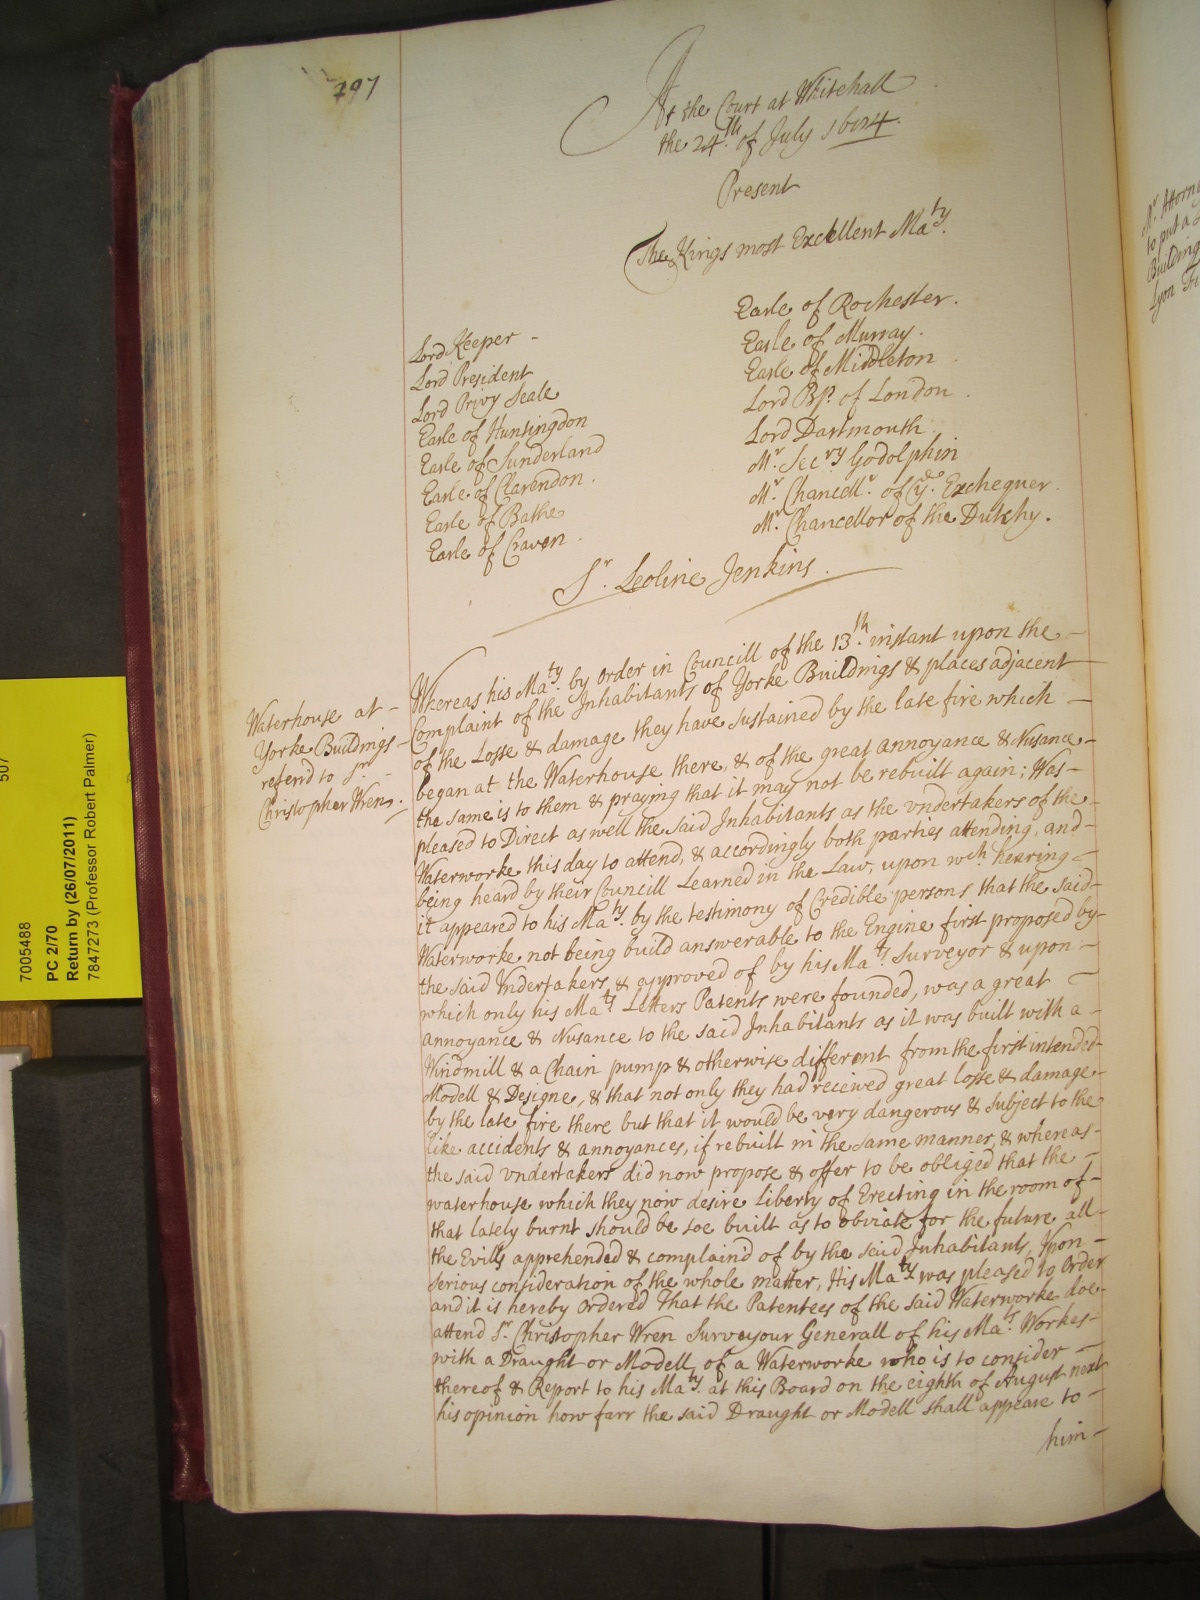 197
At the Court at Whitehall
the 24th. of July 1684.
Present
The Kings most Excellent Maty.
Lord Keeper -
Lord President
Lord Privy Seale
Earle of Huntingdon
Earle of Sunderland
Earle of Clarendon.
Earle of Bathe
Earle of Craven.
Earle of Rochester.
Earle of Murray.
Earle of Middleton.
Lord Bp. of London.
Lord Dartmouth
Mr. Secry Godolphin
Mr. Chancellr. of ye. Exchequer.
Mr. Chancellor of the Dutchy.
Sr. Leoline Jenkins.
Waterhouse at -
Yorke Buildings -
referd to Sr. -
Christopher Wren.
Whereas his Maty. by order in Councill of the 13th. instant upon the -
Complaint of the Inhabitants of Yorke Buildings & places adjacent
of the Losse & damage they have sustained by the late fire which -
began at the Waterhouse there, & of the great annoyance & Nusance -
the same is to them & praying that it may not be rebuilt again; Was -
pleased to Direct as well the said Inhabitants as the vndertakers of the -
Waterworke this day to attend, & accordingly both parties attending, and -
being heard by their Councill Learned in the Law, upon wch. hearing -
it appeared to his Maty. by the testimony of Credible persons that the said -
Waterworke not being build answerable to the Engine first proposed by -
the said Vndertakers, & approved of by his Mats. Surveyor & upon -
which only his Mats. Letters Patents were founded, was a great -
annoyance & Nusance to the said Inhabitants as it was built with a -
Windmill & a Chain pump & otherwise different from the first intended -
Modell & Designe, & that not only they had received great losse & damage -
by the late fire there but that it would be very dangerous & subject to the
like accidents & annoyances, if rebuilt in the same manner, & whereas -
the said vndertakers did now propose & offer to be obliged that the -
waterhouse which they now desire liberty of Erecting in the room of -
that lately burnt should be soe built as to obviate for the future all -
the Evills apprehended & complain'd of by the said Inhabitants, Vpon -
serious consideration of the whole matter, His Maty. was pleased to Order
and it is hereby ordered That the Patentees of the said Waterworke doe -
attend Sr. Christopher Wren Surveyour Generall of his Mats. Workes -
with a Draught or Modell of a Waterworke who is to consider -
thereof & Report to his Maty. at this Board on the eighth of August next
his opinion how farr the said Draught or Modell shall appeare to -
him -
Mr. Attorne
to put a
Building
Lyon
507
7005488
PC 2/70
Return by (26/07/2011)
7847273 (Professor Robert Palmer)